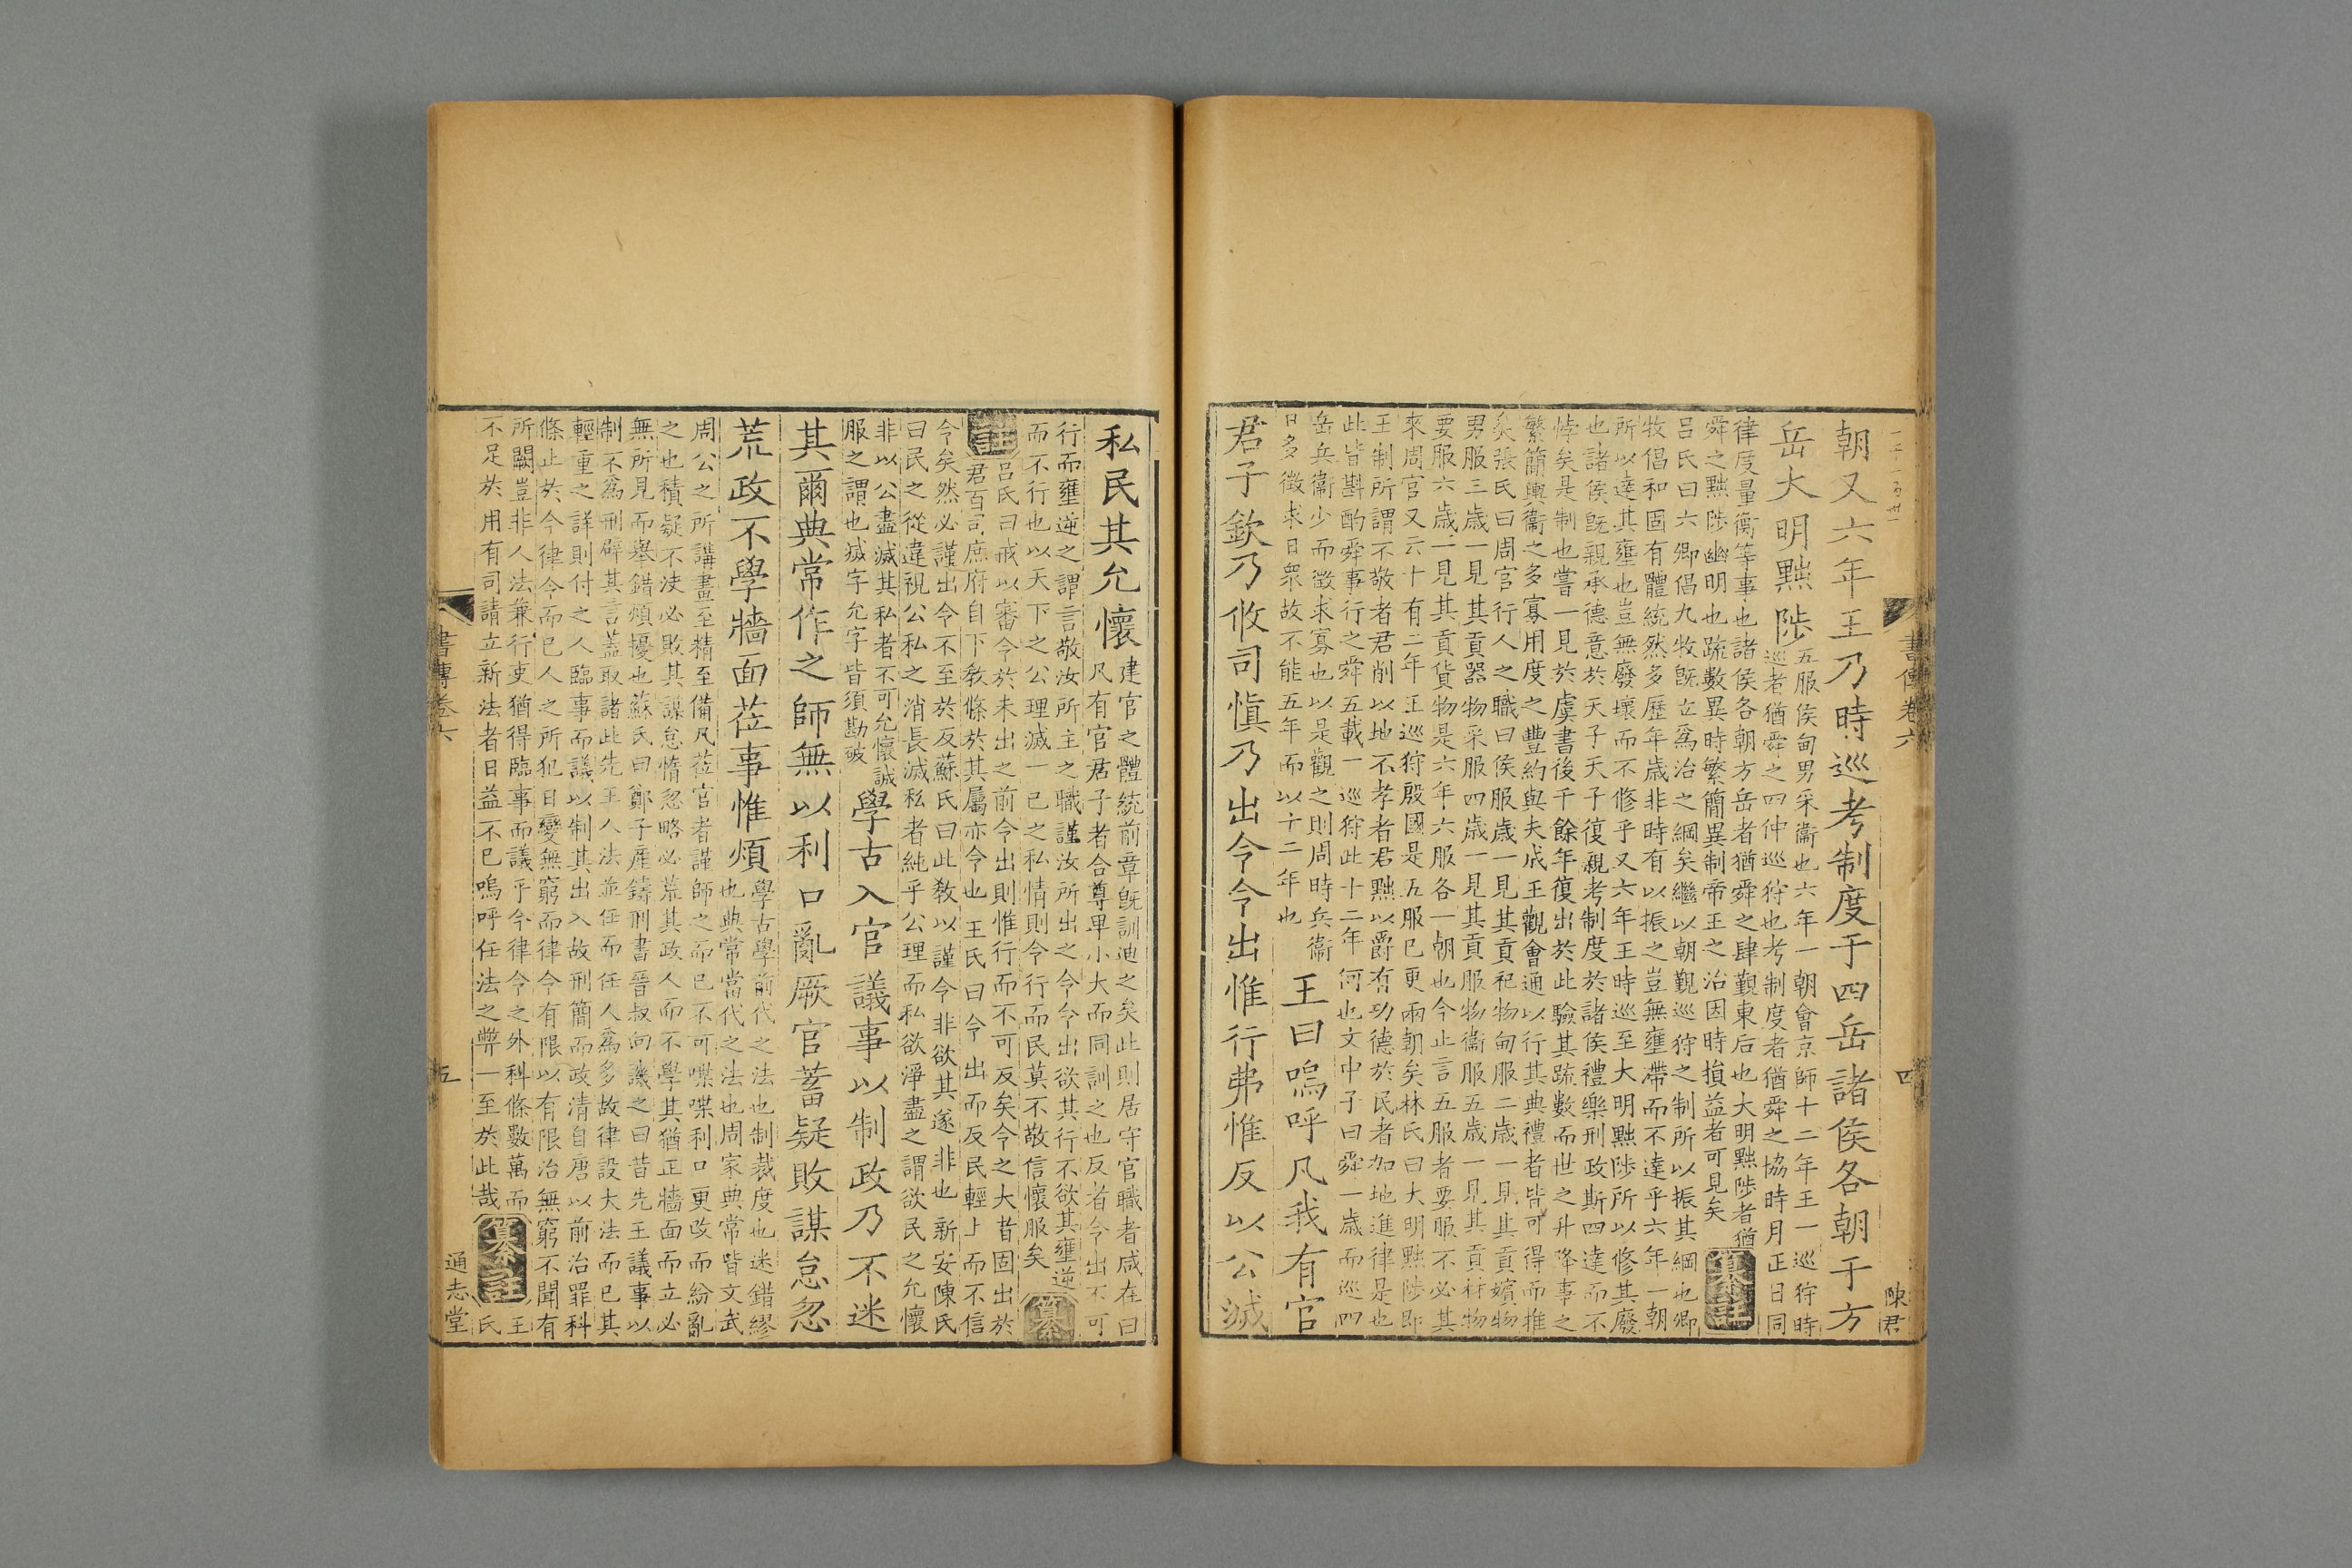 書傳卷六
四
陳君
朝又六年王乃時巡考制度于四岳諸侯各朝于方
岳大明黜陟
五服侯甸男采衛也六年一朝會京師十二年王一巡狩時
巡者猶舜之四仲巡狩也考制度者猶舜之協時月正日同
律度量衡等事也諸侯各朝方岳者猶舜之肆覲東后也大明黜陟者猶
舜之黜陟幽明也疏數異時繁簡異制帝王之治因時損益者可見矣
纂註
呂氏曰六卿倡九牧旣立爲治之綱矣繼以朝覲巡狩之制所以振其綱也卿
牧倡和固有體統然多歷年歲非時有以振之豈無壅滯而不達乎六年一朝
所以達其壅也豈無廢壞而不修乎又六年王時巡至大明黜陟所以修其廢
也諸侯旣親承德意於天子天子復親考制度於諸侯禮樂刑政斯四達而不
悖矣是制也嘗一見於虞書後千餘年復出於此驗其疏數而世之升降事之
繁簡輿衛之多寡用度之豐約與夫成王觀會通以行其典禮者皆可得而推
矣張氏曰周官行人之職曰侯服歲一見其貢祀物甸服二歲一見其貢嬪物
男服三歲一見其貢器物采服四歲一見其貢服物衛服五歲一見其貢材物
要服六歲一見其貢貨物是六年六服各一朝也今止言五服者要服不必其
來周官又云十有二年王巡狩殷國是五服已更兩朝矣林氏曰大明黜陟卽
王制所謂不敬者君削以地不孝者君黜以爵有功德於民者加地進律是也
此皆斟酌舜事行之舜五載一巡狩此十二年何也文中子曰舜一歲而巡四
岳兵衛少而徵求寡也以是觀之則周時兵衛
日多徵求日衆故不能五年而以十二年也
王曰嗚呼凡我有官
君子欽乃攸司愼乃出令令出惟行弗惟反以公滅
私民其允懷
建官之體統前章旣訓迪之矣此則居守官職者咸在曰
凡有官君子者合尊卑小大而同訓之也反者令出不可
行而壅逆之謂言敬汝所主之職謹汝所出之令令出欲其行不欲其壅逆
而不行也以天下之公理滅一己之私情則令行而民莫不敬信懷服矣
纂註
呂氏曰戒以審令於未出之前令出則惟行而不可反矣令之大者固出於
君百司庶府自下敎條於其屬亦令也王氏曰令出而反民輕上而不信
令矣然必謹出令不至於反蘇氏曰此敎以謹令非欲其遂非也新安陳氏
曰民之從違視公私之消長滅私者純乎公理而私欲淨盡之謂欲民之允懷
非以公盡滅其私者不可允懷誠
服之謂也滅字允字皆須勘破
學古入官議事以制政乃不迷
其爾典常作之師無以利口亂厥官蓄疑敗謀怠忽
荒政不學牆面莅事惟煩
學古學前代之法也制裁度也迷錯繆
也典常當代之法也周家典常皆文武
周公之所講畫至精至備凡莅官者謹師之而已不可喋喋利口更改而紛亂
之也積疑不決必敗其謀怠惰忽略必荒其政人而不學其猶正牆面而立必
無所見而舉錯煩擾也蘇氏曰鄭子產鑄刑書晉叔向譏之曰昔先王議事以
制不爲刑辟其言蓋取諸此先王人法並任而任人爲多故律設大法而已其
輕重之詳則付之人臨事而議以制其出入故刑簡而政淸自唐以前治罪科
條止於今律令而已人之所犯日變無窮而律令有限以有限治無窮不聞有
所闕豈非人法兼行吏猶得臨事而議乎今律令之外科條數萬而
不足於用有司請立新法者日益不已嗚呼任法之弊一至於此哉
纂註
王
氏
書傳卷六
五
通志堂